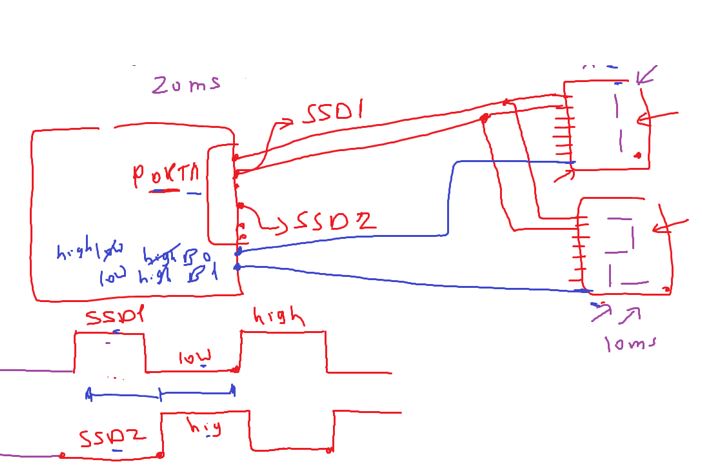 20ms
SSD1
PORTA
SSD2
high low high B0
low high B1
SSD1
high
low
10ms
SSD2
hig